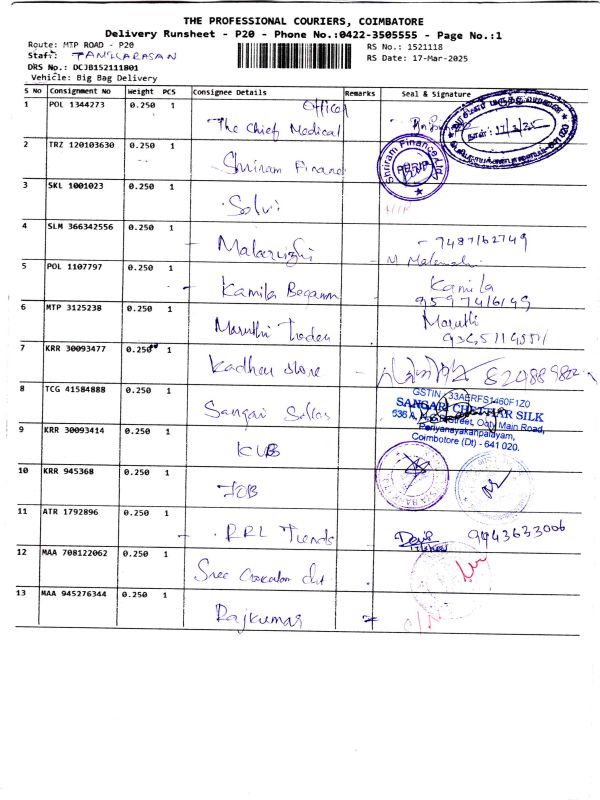 THE PROFESSIONAL COURIERS, COIMBATORE
Delivery Runsheet - P20 - Phone No.:0422-3505555 - Page No.:1
Route: MTP ROAD - P20
RS No.: 1521118
Staff: TAMILARASAN
RS Date: 17-Mar-2025
DRS No.: DCJB152111801
Vehicle: Big Bag Delivery
S No Consignment No Weight PCS Consignee Details Remarks Seal & Signature
1 POL 1344273 0.250 1 The Chief Medical Officer
2 TRZ 120103630 0.250 1 Shriram Finance
Shriram Finance Ltd
3 SKL 1001023 0.250 1 Selvi
4 SLM 366342556 0.250 1 Malarvizhi
5 POL 1107797 0.250 1 Kamila Begamm Kamila
9597416149
6 MTP 3125238 0.250 1 Maruthi Traders Maruthi
7 KRR 30093477 0.250 1 Kadhar store
8 TCG 41584888 0.250 1 Sangari Silks
GSTIN 33AERFS1460F1Z0
SANGARI CHETTIAR SILK
936 A, Street, Ooty Main Road,
Periyanayakanpalayam,
Coimbotore (Dt) - 641 020.
9 KRR 30093414 0.250 1 KVB
10 KRR 945368 0.250 1 IOB
11 ATR 1792896 0.250 1 RRL Trends 9443633006
12 MAA 708122062 0.250 1 Sree
13 MAA 945276344 0.250 1 Rajkumar